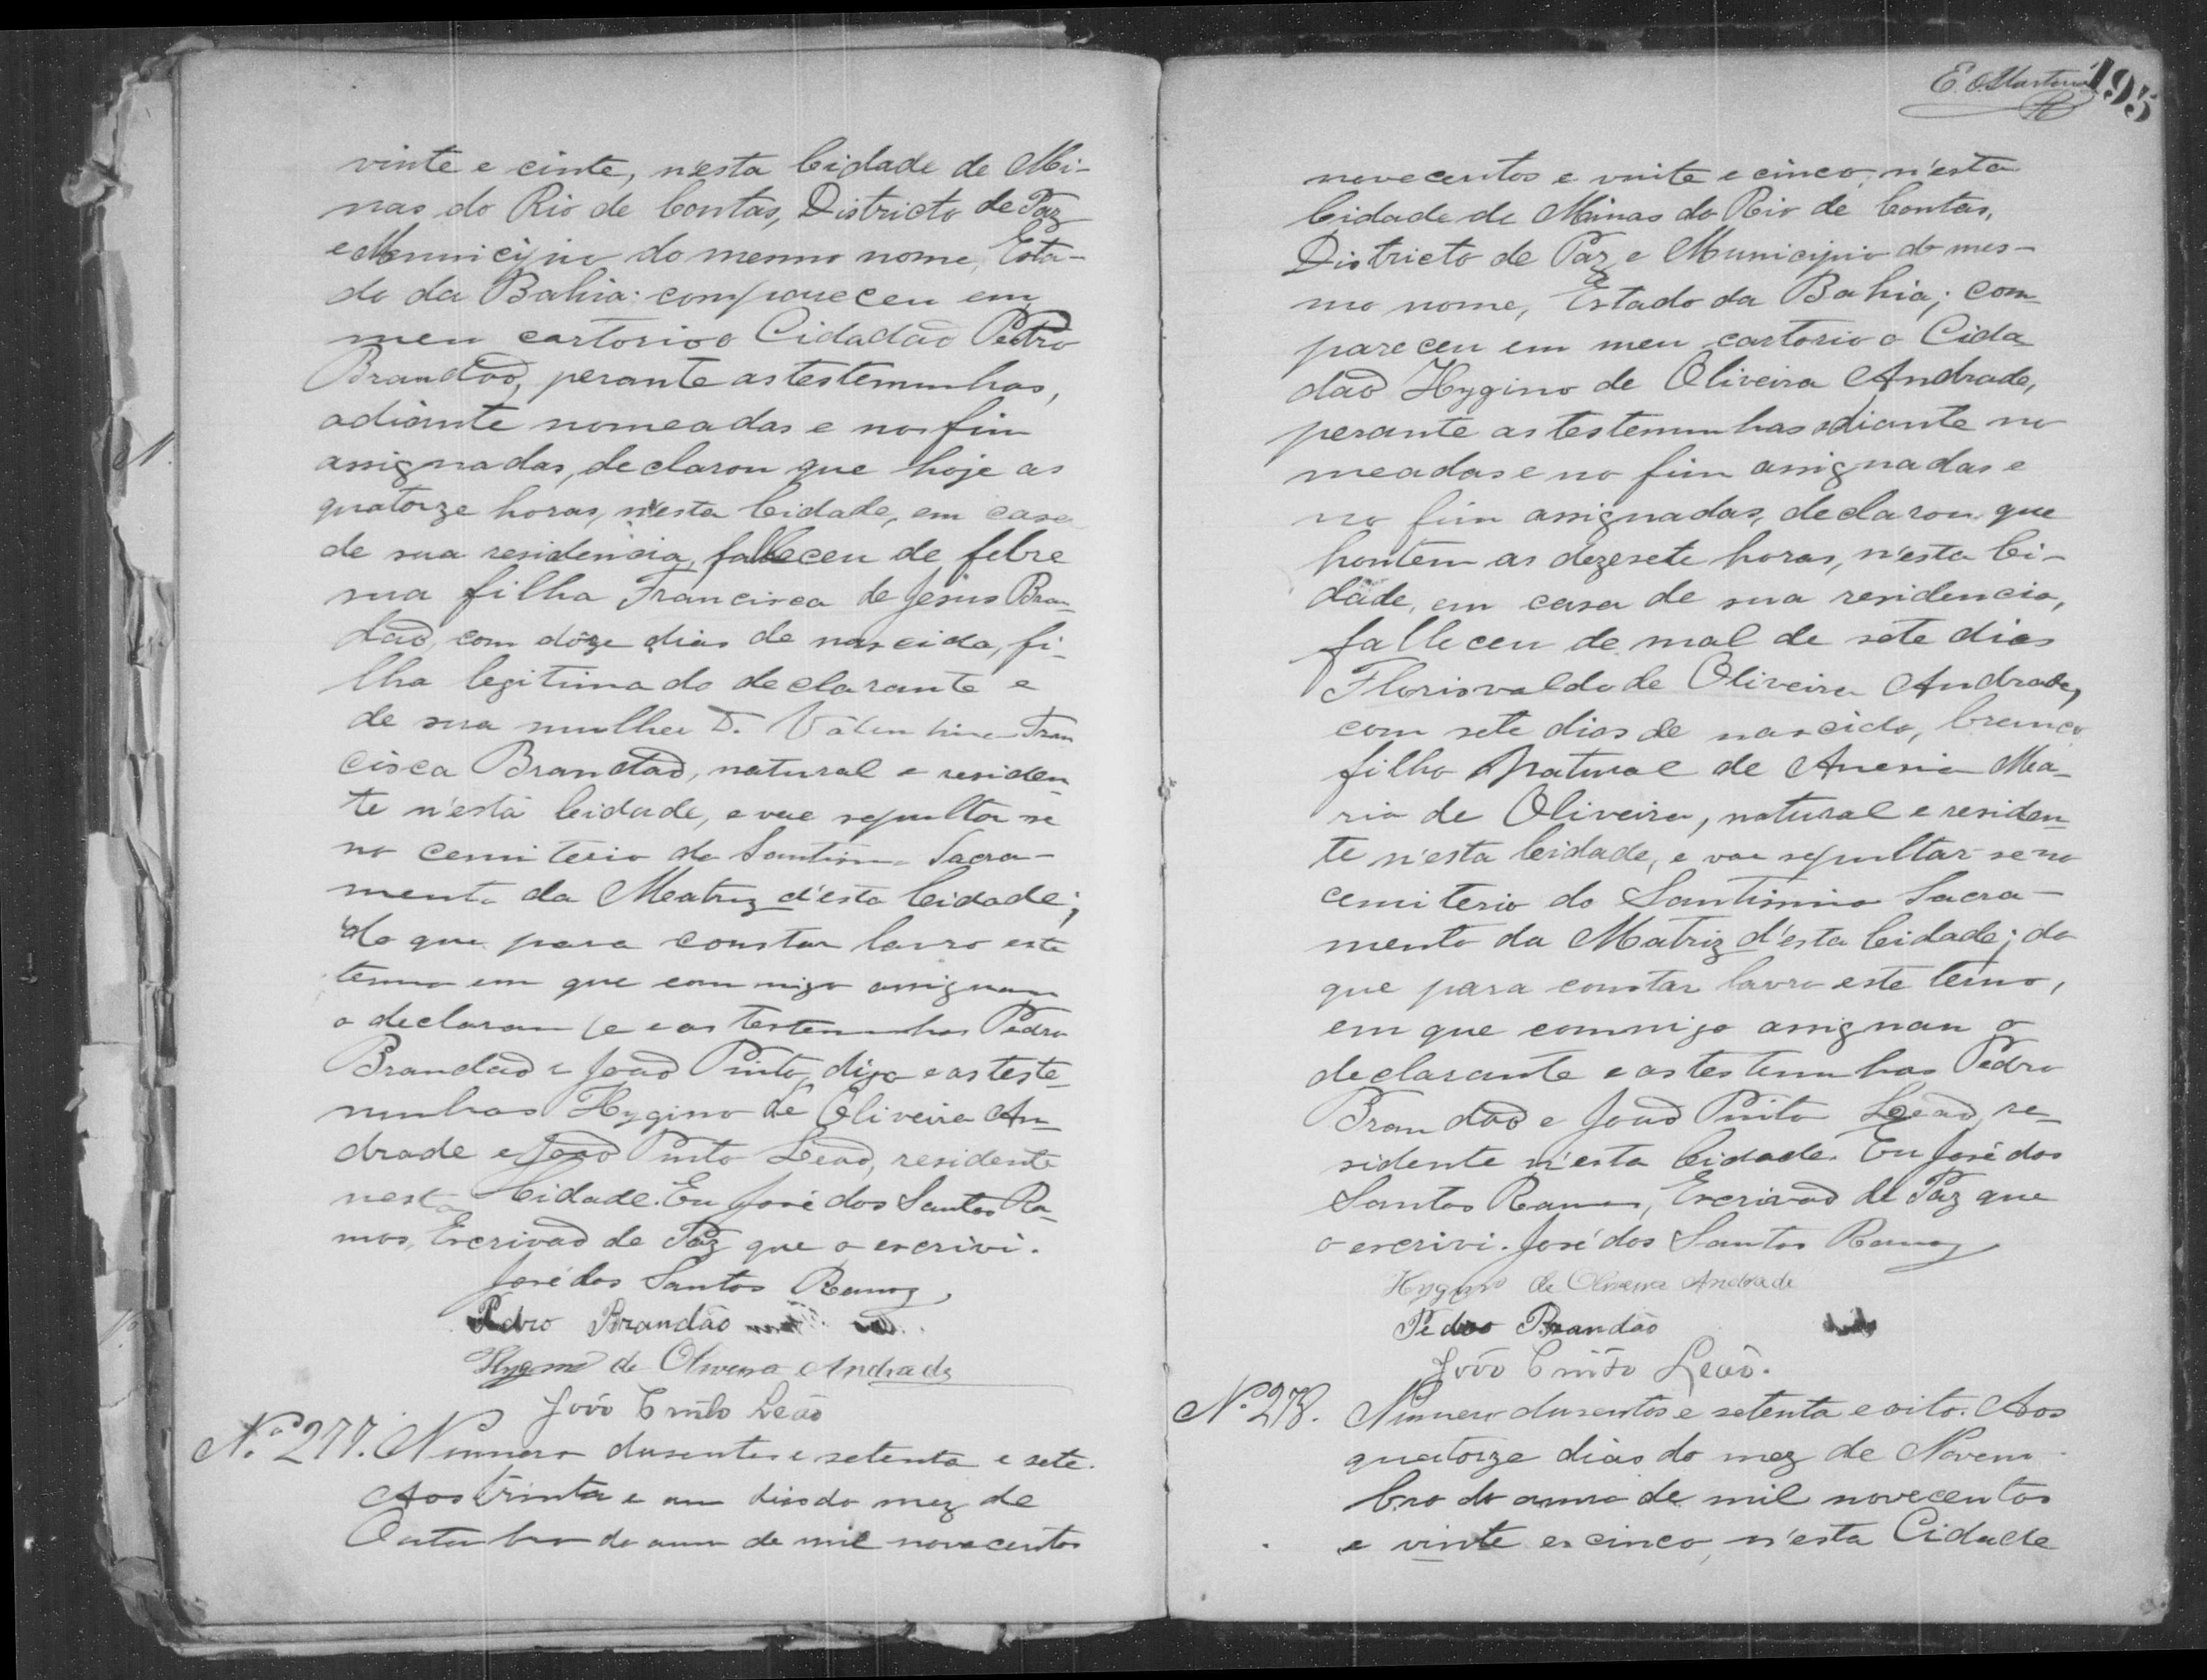 vinte e cinte, n'esta Cidade de Mi-
nas do Rio de Contas, Districto de Paz
e Municipio do mesmo nome, Esta-
do da Bahia: compareceu em
meu cartorio o Cidadão Pedro
Brandão, perante as testemunhas,
adiante nomeadas e no fim
assignadas, declarou que hoje as
quatorze horas, n'esta Cidade, em casa
de sua residencia, falleceu de febre
sua filha Francisca de Jesus Bran-
dão, com dôze dias de nascida, fi-
lha legitima do declarante e
de sua mulher D. Valentina Fran
cisca Brandão, natural e residen-
te n'esta Cidade, e vae sepultar se
no cemiterio do Santissimo Sacra-
mento da Matriz d'esta Cidade;
do que para constar lavro este
termo em que commigo assignam
o declarante e as testemunhas Pedro
Brandão e João Pinto, digo e as teste-
munhas Hygino de Oliveira An-
drade e João Pinto Leão, residente
nesta Cidade. Eu José dos Santos Ra-
mos, Escrivão de Paz que o escrivi.
José dos Santos Ramos
Pedro Brandão
Hygino de Oliveira Andrade
João Pinto Leão
N.º 277. Numero dusentos e setenta e sete.
Aos trinta e um dias do mez de
Outubro do anno de mil novecentos
195
novecentos e vinte e cinco, n'esta
Cidade de Minas do Rio de Contas,
Districto de Paz e Municipio do mes-
mo nome, Estado da Bahia; com-
pareceu em meu cartorio o Cida
dão Hygino de Oliveira Andrade,
perante as testemunhas adiante no
meadas e no fim assignadas e
no fim assignadas, declarou que
hontem as dezesete horas, n'esta Ci-
dade, em casa de sua residencia,
falleceu de mal de sete dias
Florisvaldo de Oliveira Andrade,
com sete dias de nascido, branco
filho natural de Anesia Ma-
ria de Oliveira, natural e residen-
te n'esta Cidade, e vae sepultar-se no
cemiterio do Santissimo Sacra-
mento da Matriz d'esta Cidade; do
que para constar lavro este termo,
em que commigo assignam o
declarante e as testemunhas Pedro
Brandão e João Pinto Leão, re-
sidente n'esta Cidade. Eu José dos
Santos Ramos, Escrivão de Paz que
o escrivi. José dos Santos Ramos
Hygino de Oliveira Andrade
Pedro Brandão
João Pinto Leão.
N.º 278. Numero dusentos e setenta e oito. Aos
quatorze dias do mez de Novem
bro do anno de mil novecentos
e vinte e cinco, n'esta Cidade